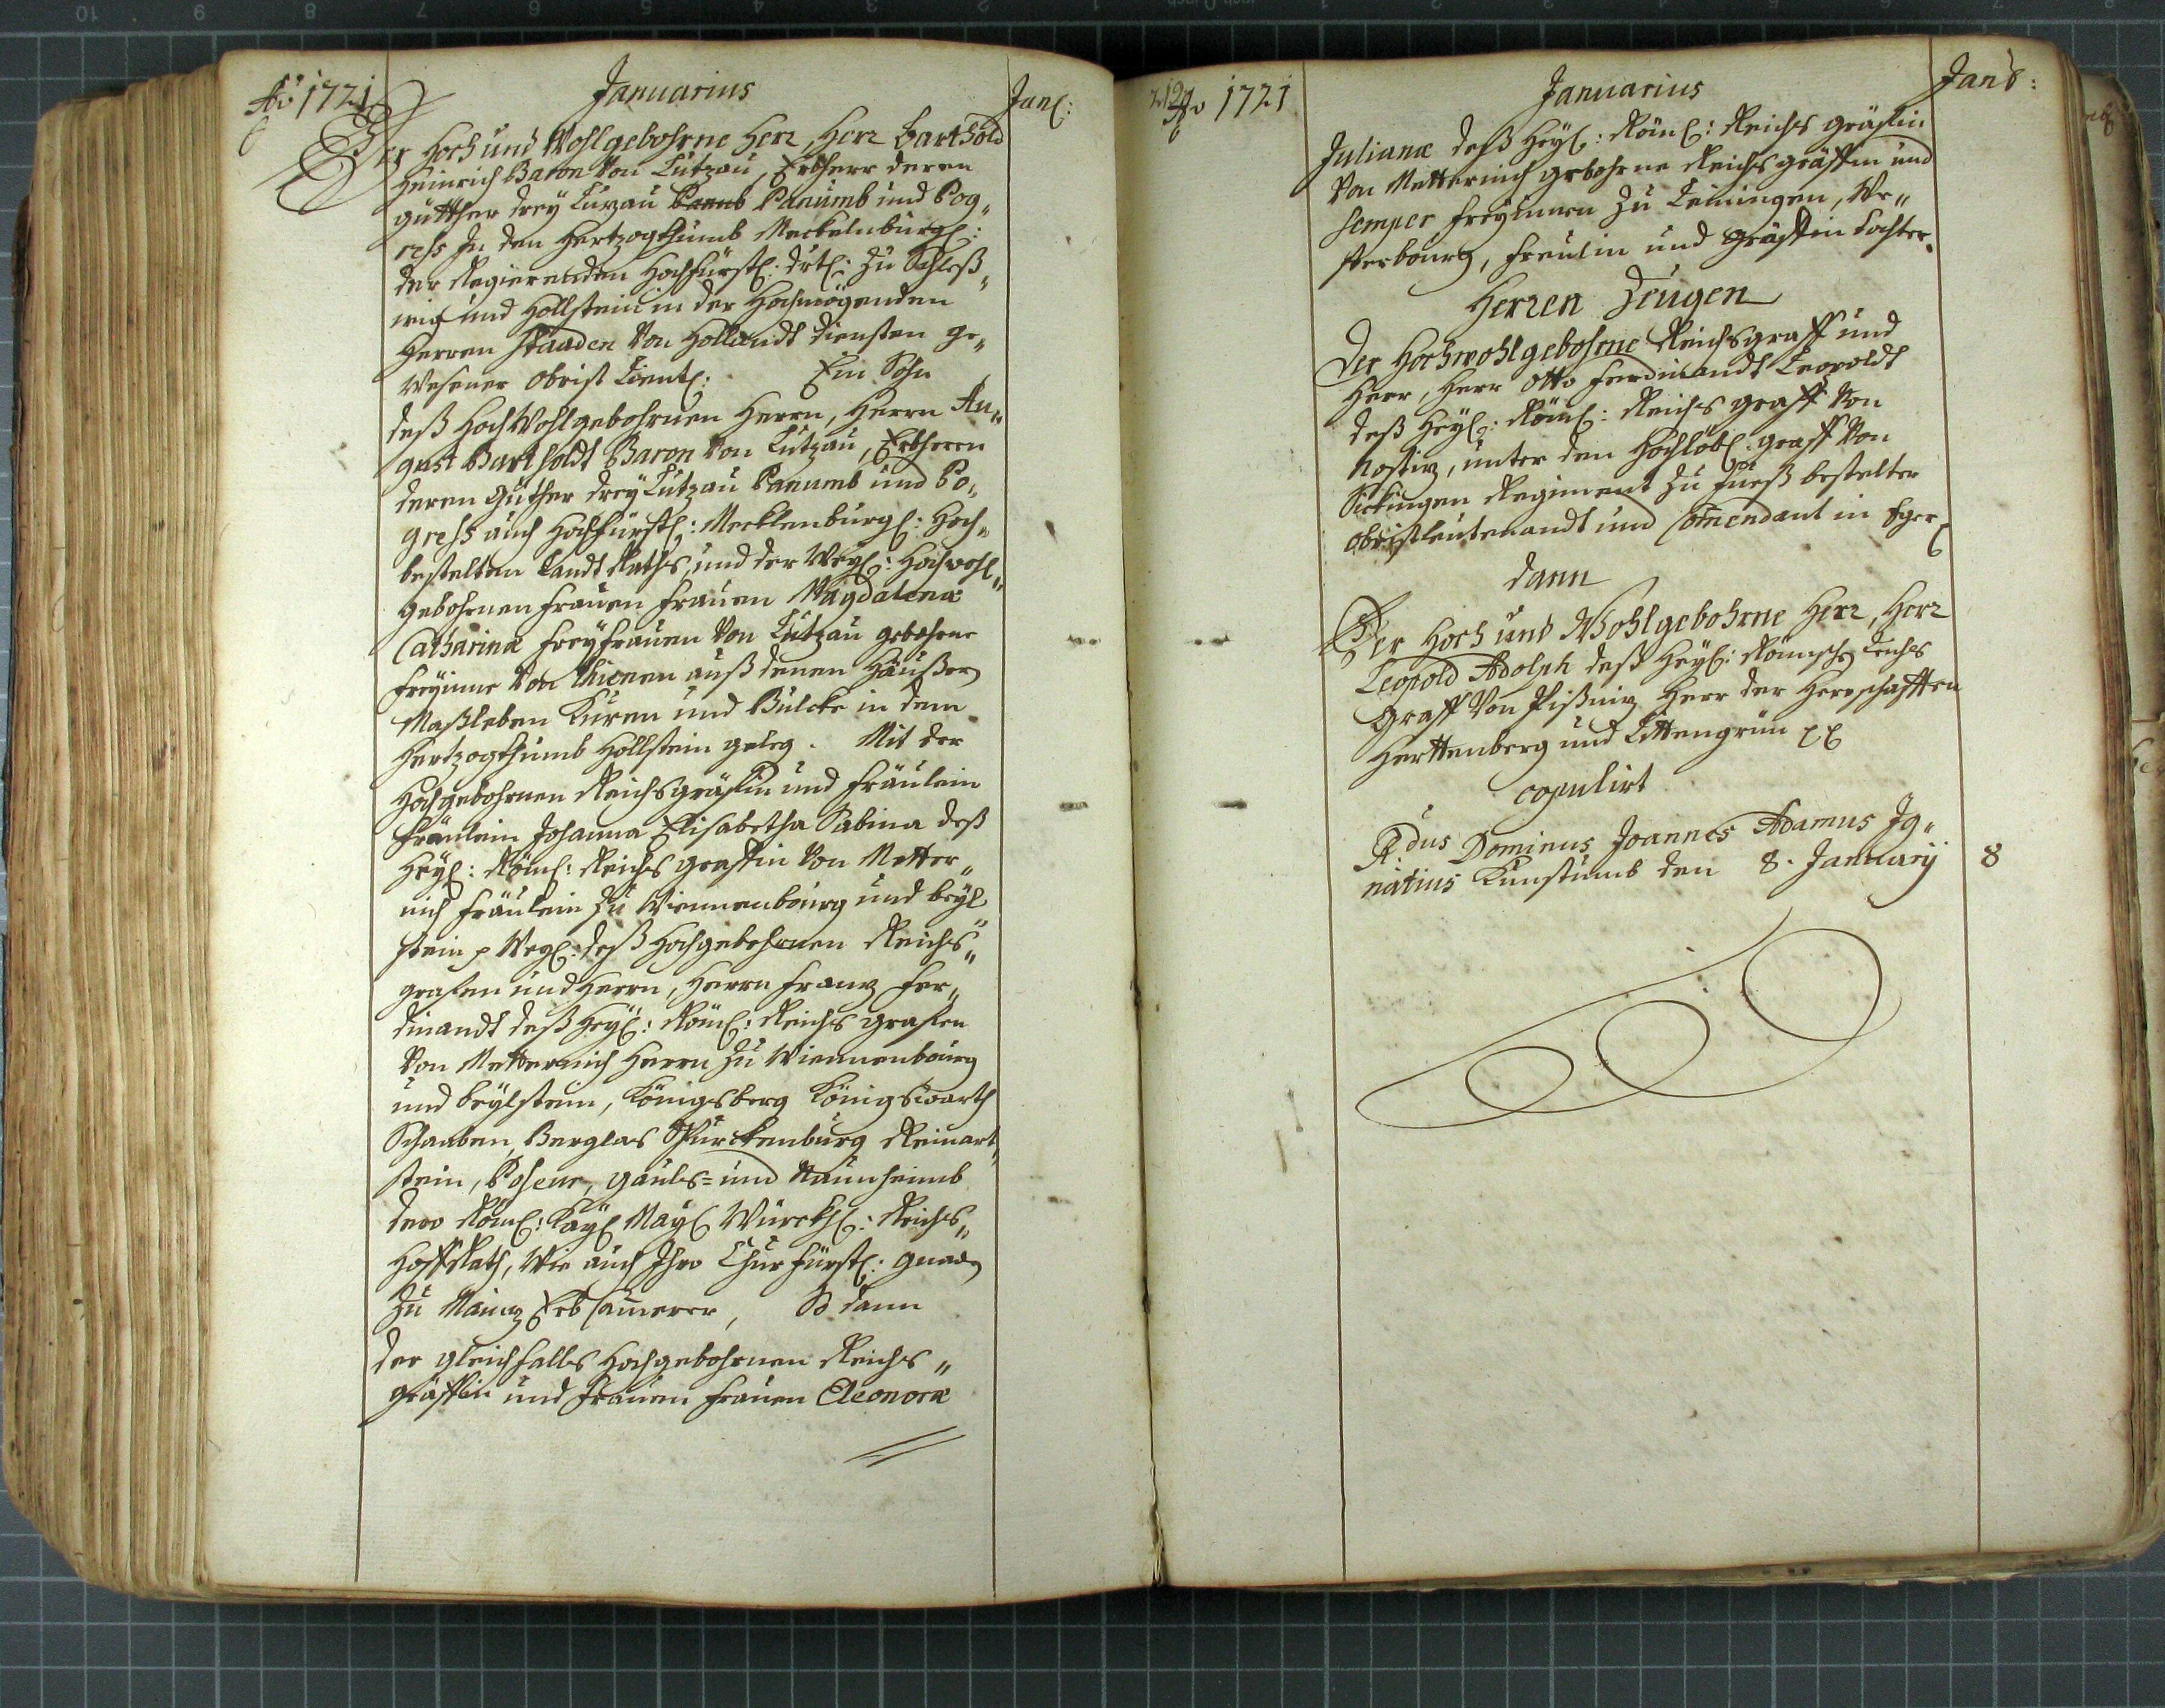 Aō 1721
Januarius
Jan:
Der Hoch und Wohlgebohrne Herr, Herr Barthold
Heinrich Baron Von Lützau, Erbherr deren
gütther drey Lüzau Panumb und Pog„
ress In den Hertzogthumb Meckelnburg:
der Regierenden Hochfürstl: drtl: Zu Schleß„
wig und Hollstein in der Hochmögenden
Herren Staaden Von Hollandt diensten ge„
Wesener obrist Lieut: Ein Sohn
deß HochWohlgebohrnen Herrn, Herrn Au„
gust Bartholdt Baron Von Lützau, Erbherrn
deren Güther drey Lützau Panumb und Po„
gress auch Hochfürstl: Mecklenburgl: Hoch„
bestelten Landt Raths, und der Weyl: Hochwohl„
gebohrnen Frauen Frauen Magdalenæ
Catharinæ Freyfrauen Von Lützau gebohrne
Freyinne Von Thienen auß denen Häußern
Maßleben Küren und Bülcke in dem
Hertzogthumb Hollstein geleg. Mit der
Hochgebohrnen Reichsgräfin und Fräulein
Fräulein Johanna Elisabetha Sabina deß
Heyl: Röml: Reichs grafin Von Metter„
nich Fräulein Zu Winnenbourg und beyl
stein p Weyl: deß Hochgebohrnen Reichs„
grafen und Herrn, Herrn Franz Fer„
dinandt deß Heyl: Röml: Reichs grafen
Von Metternich Herrn Zu Winnenbourg
und beylstein, Königsberg Königswarth
Schaaben, Berglas Spurckenburg Reinart„
stein, Poseur, gauls= und Naunheimb
dero Röml: Kayl Mayl Würckhl: Reichs„
Hoffrath, Wie auch Ihro Churfürstl: gnaden
Zu Mainz Erb Camerer, So dann
der gleichfalls Hochgebohrnen Reichs„
gräffin und Frauen Frauen Eleonoræ
212
Ao 1721
Januarius
Jan's:
Julianæ deß Heyl: Röml: Reichs gräfin
Von Metternich gebohrne Reichsgräffin und
semper Freyinnen Zu Leiningen, We„
sterbourg, Freulin und Gräffin Tochter.
Herren Zeugen
Der Hochwohlgebohrne Reichsgraff und
Herr, Herr Otto Ferdinandt Leopoldt
deß Heyl: Röml: Reichs graff Von
Nostiz, unter den Hochlöbl: graff Von
Sickingen Regiment Zu Fueß bestelter
obristleutenandt und Comendant in Eger
dann
Der Hoch und Wohlgebohrne Herr, Herr
Leopold Adolph deß Heyl: Römischen Reichs
Graff Von Pißniz Herr der Herrschafften
Herttenberg und Littengrün
copulirt
R.dus Dominus Joannes Adamus Ig„
natius Kunstumb den 8. Januarÿ
8